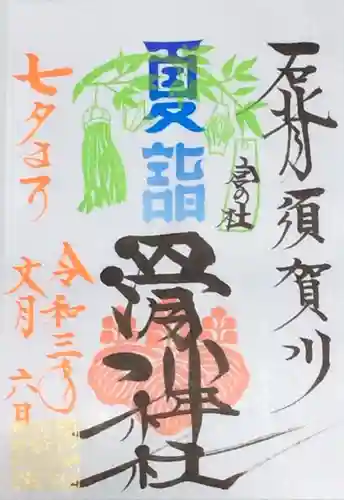 石背須賀川
夏詣
滑川神社
七夕まつり
令和三年
文月 六日